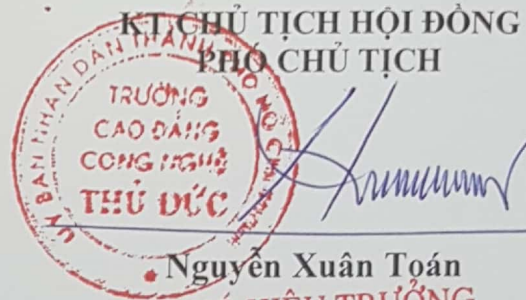 KT.CHỦ TỊCH HỘI ĐỒNG
PHÓ CHỦ TỊCH
ỦY BAN NHÂN DÂN THÀNH PHỐ HỒ CHÍ MINH
TRƯỜNG
CAO ĐẲNG
CÔNG NGHỆ
THỦ ĐỨC
Nguyễn Xuân Toán
HIỆU TRƯỞNG